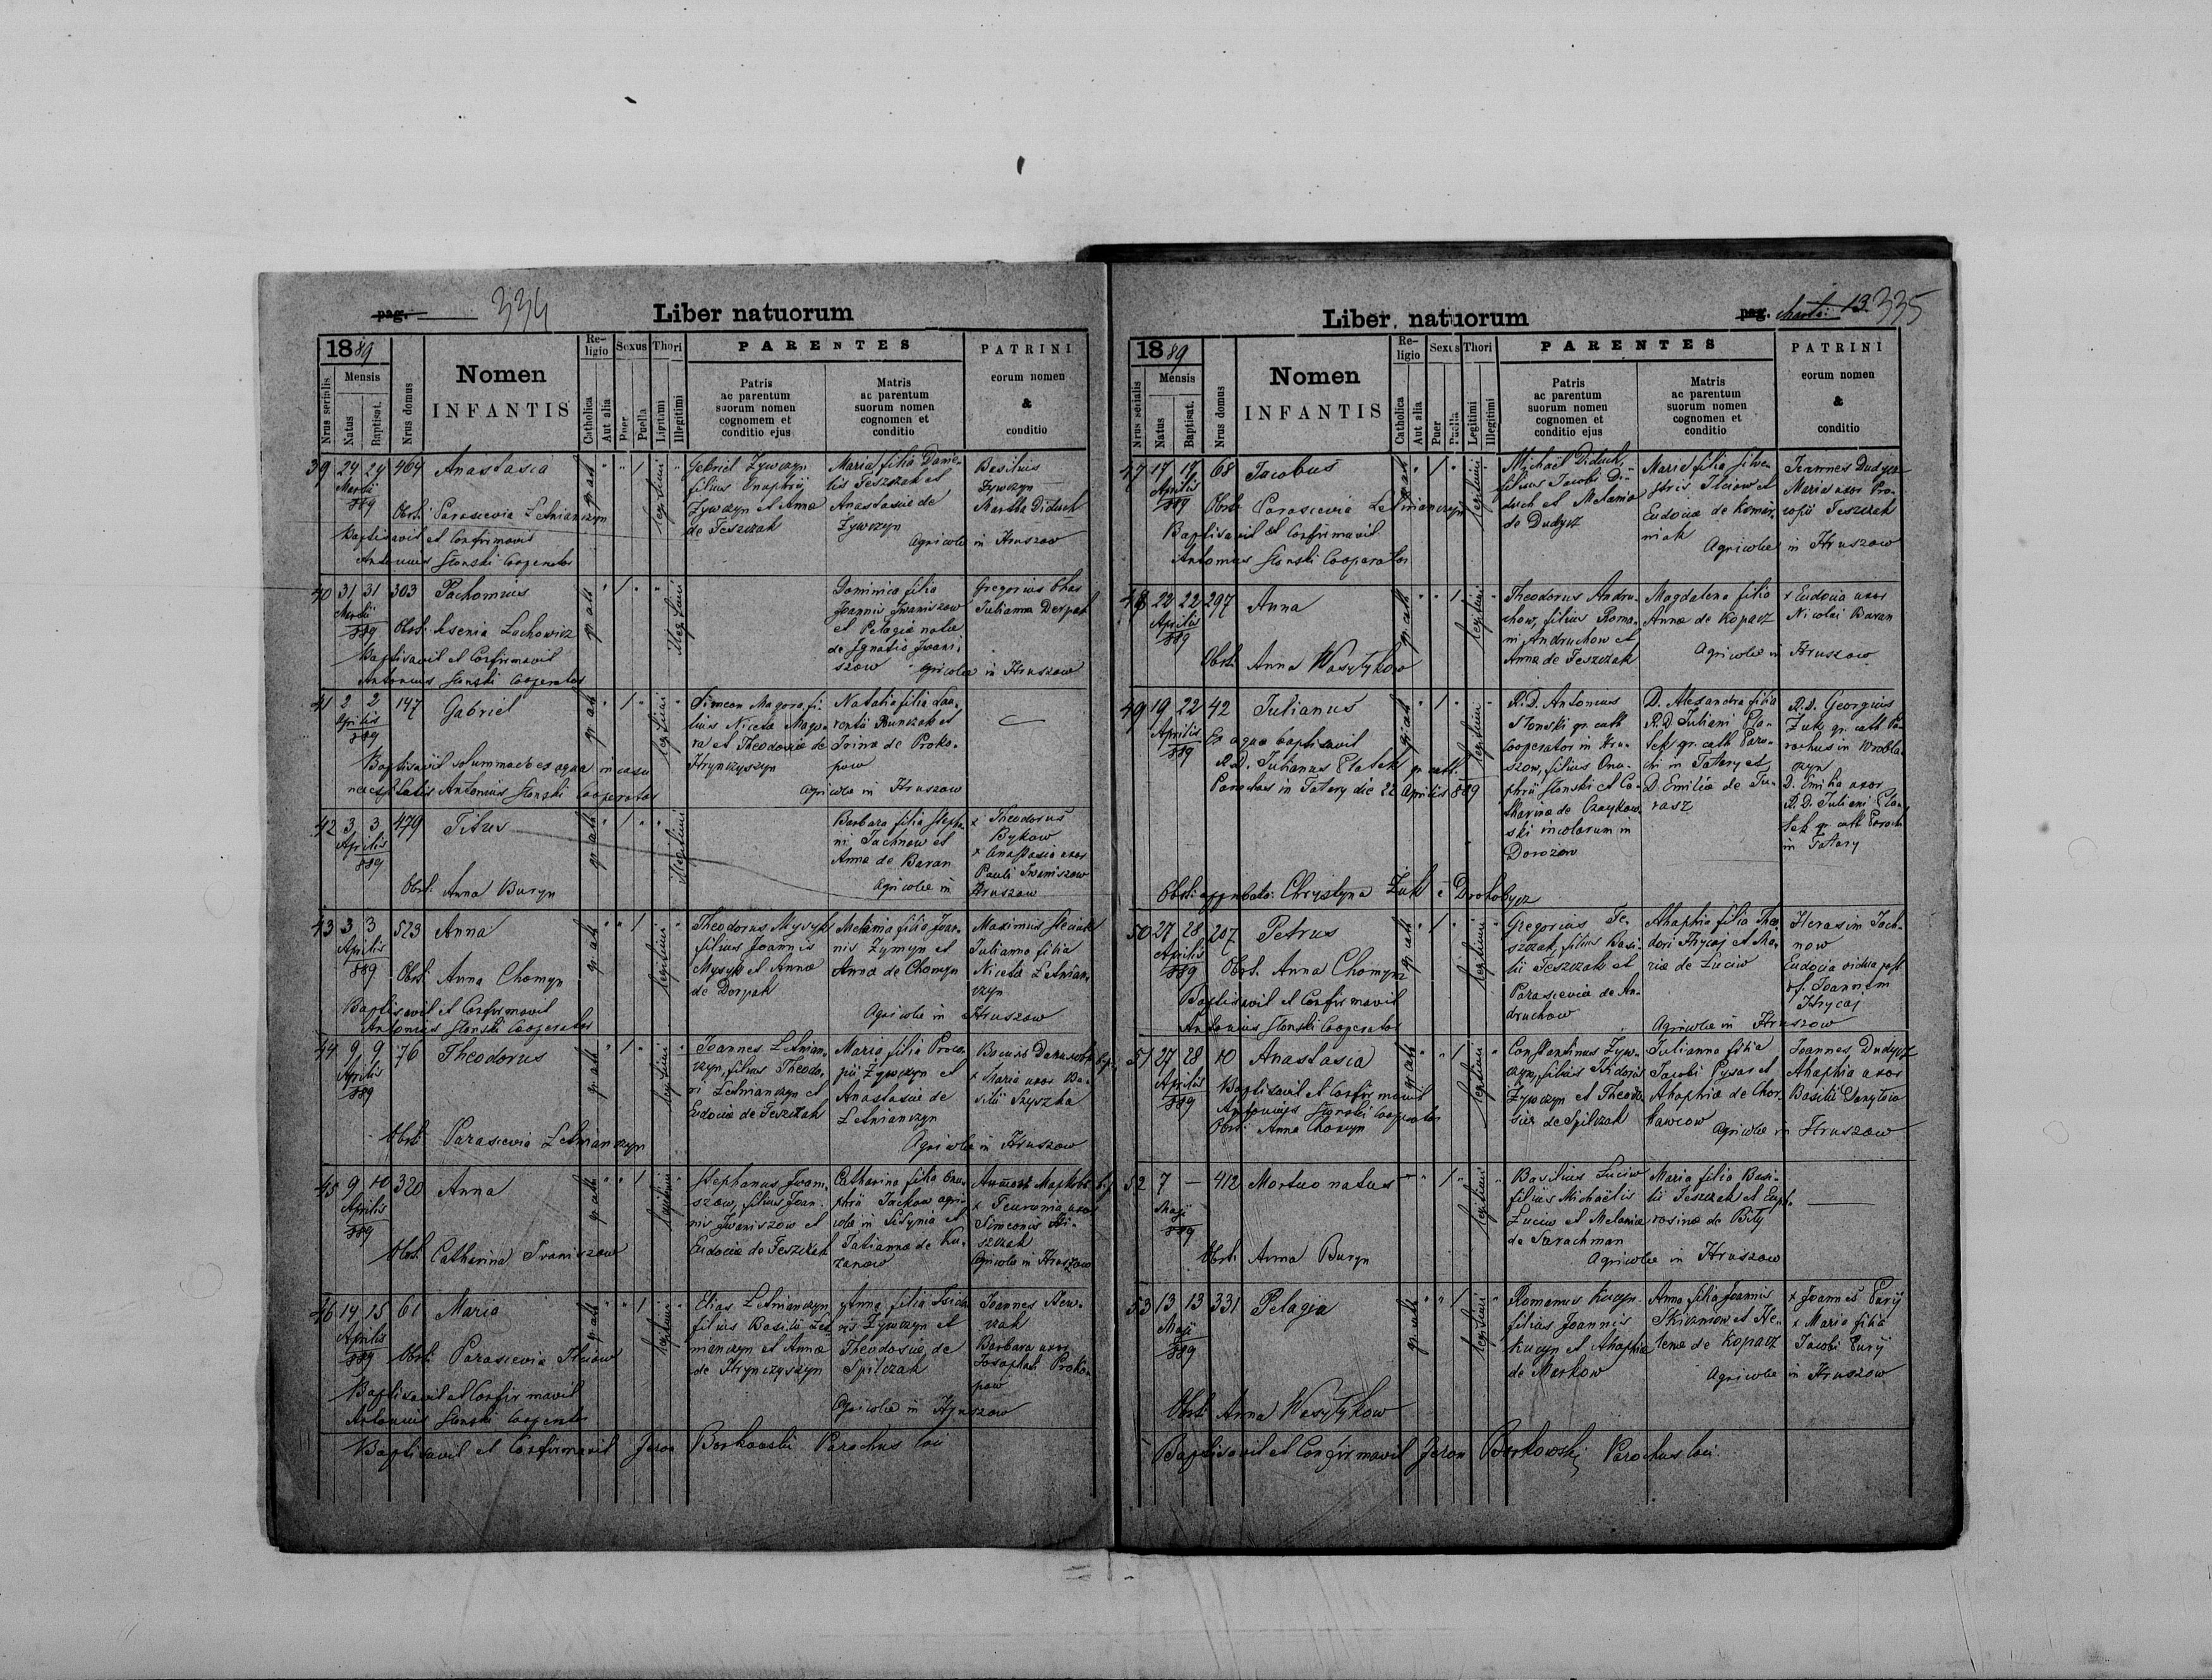 pag. 334
Liber natuorum
1889
Nrus serialis
Mensis
Natus
Baptisat.
Nrus domus
Nomen
INFANTIS
Religio
Catholica
Aut alia
Sexus
Puer
Puella
Thori
Ligitimi
Illegitimi
PARENTES
Patris
ac parentum
suorum nomen
cognomem et
conditio ejus
Matris
ac parentum
suorum nomen
cognomen et
conditio
PATRINI
eorum nomen
&
conditio
39 24 24 464 Anastasia
Martii
889
Obst. Parascevia Letnianczyn
Baptisavit et Confirmavit
Antonius Slonski Cooperator
gr. cath
legitimi
Gabriel Zywczyn
filius Onuphrii
Zywczyn et Anna
de Teszczak
Maria filia Danie-
lis Teszczak et
Anastasiae de
Zywczyn
Basilius
Zywczyn
Martha Diduch
Agricolae in Hruszow
40 31 31 303 Pachomius
Martii
889
Obst. Ksenia Lachowicz
Baptisavit et Confirmavit
Antonius Slonski Cooperator
gr. cath
illegitimi
Dominica filia
Joannis Iwaniszow
et Pelagia nata
de Ignatio Iwani-
szow
Gregorius
Julianna Derpak
Agricolae in Hruszow
41 2 2 147 Gabriel
Aprilis
889
Baptisavit solummodo ex aqua in casu
necessitatis Antonius Slonski Cooperator
gr. cath
legitimi
Simeon Magora, fi-
lius Niceta Mago-
ra et Theodosia de
Hrynczyszyn
Natalia filia Lau-
rentii Bunczak et
Irina de Proko-
pow
Agricolae in Hruszow
42 3 3 479 Titus
Aprilis
889
Obst. Anna Buryn
gr. cath
illegitimi
Barbara filia Stepha-
ni Jachnow et
Anna de Baran
Agricolae in Hruszow
x Theodorus
Bykow
x Anastasia uxor
Pauli Iwaniszow
43 3 3 523 Anna
Aprilis
889
Obst. Anna Chomyn
Baptisavit et Confirmavit
Antonius Slonski Cooperator
gr. cath
legitimi
Theodorus Mysyk
filius Joannis
Mysyk et Anna
de Derpak
Melania filia Joan-
nis Zymyn et
Anna de Chomyn
Maximus
Julianna filia
Niceta Letnian-
czyn
Agricolae in Hruszow
44 9 9 76 Theodorus
Aprilis
889
Obst. Parascevia Letnianczyn
gr. cath
legitimi
Joannes Letnian-
czyn, filius Theodo-
ri Letnianczyn et
Eudocia de Teszczak
Maria filia Proco-
pii Zywczyn et
Anastasiae de
Letnianczyn
x Maria uxor Ba-
silii Szyszka
Agricolae in Hruszow
45 9 10 320 Anna
Aprilis
889
Obst. Catharina Iwaniszow
gr. cath
legitimi
Stephanus Iwani-
szow, filius Joan-
nis Iwaniszow et
Eudocia de Teszczak
Catharina filia Onu-
phrii Jackow agri-
cola in Litynia et
Tatianna de Ku-
zanow
x Feuronia uxor
Simeonis
Agricolae in Hruszow
46 14 15 61 Maria
Aprilis
889
Obst. Parascevia Ilciow
Baptisavit et Confirmavit
Antonius Slonski Cooperator
gr. cath
legitimi
Elias Letnianczyn
filius Basilii Let-
nianczyn et Anna
de Hrynczyszyn
Anna filia Isido-
ris Zywczyn et
Theodosia de
Spilczak
Joannes
Barbara uxor
Josaphat Proko-
pow
Agricolae in Hruszow
Baptisavit et Confirmavit Jeron Borkowski Parochus loci
Liber natuorum
pag. 13. 335
1889
Nrus serialis
Mensis
Natus
Baptisat.
Nrus domus
Nomen
INFANTIS
Religio
Catholica
Aut alia
Sexus
Puer
Puella
Thori
Legitimi
Illegitimi
PARENTES
Patris
ac parentum
suorum nomen
cognomen et
conditio ejus
Matris
ac parentum
suorum nomen
cognomen et
conditio
PATRINI
eorum nomen
&
conditio
47 17 17 68 Jacobus
Aprilis
889
Obst. Parascevia Letnianczyn
Baptisavit et Confirmavit
Antonius Slonski Cooperator
gr. cath
legitimi
Michaël Diduch,
filius Jacobi Di-
duch et Melania
de Dudycz
Maria filia Silve-
stris Ilciow et
Eudocia de Komar-
niak
Joannes Dudycz
Maria uxor Pro-
copii Teszczak
Agricolae in Hruszow
48 22 22 297 Anna
Aprilis
889
Obst. Anna Wasylykow
gr. cath
legitimi
Theodorus Andru-
chow, filius Roma-
ni Andruchow et
Anna de Teszczak
Magdalena filia
Anna de Kopacz
x Eudocia uxor
Nicolai Baran
Agricolae in Hruszow
49 19 22 42 Julianus
Aprilis
889
Ex aqua baptisavit
R.D. Julianus gr. cath.
Parochus in Tatary die 22 Aprilis 889
Obst. approbata: Chrystyna Zuk e Drohobycz
gr. cath
legitimi
R.D. Antonius
Slonski gr. cath
Cooperator in Hru-
szow, filius Onu-
phrii Slonski et Ca-
tharina de Czaykow-
ski incolarum in
Dorozow
D. Alexandra filia
R.D. Juliani
gr. cath Paro-
chi in Tatary et
D. Emilia de Tu-
rasz
R.D. Georgius
Zuk gr. cath Pa-
rochus in Wrobla-
czyn
D. Emilia uxor
R.D. Juliani
gr. cath Parochi
in Tatary
50 27 28 207 Petrus
Aprilis
889
Obst. Anna Chomyn
Baptisavit et Confirmavit
Antonius Slonski Cooperator
gr. cath
legitimi
Gregorius Te-
szczak, filius Basi-
lii Teszczak et
Parascevia de An-
druchow
Ahaphia filia Theo-
dori Hrycaj et Ma-
ria de Luciw
Herasim Jach-
now
Eudocia vidua post
Joannem
Hrycaj
Agricolae in Hruszow
51 27 28 10 Anastasia
Aprilis
889
Baptisavit et Confirmavit
Antonius Slonski Cooperator
Obst. Anna Chomyn
gr. cath
legitimi
Constantinus Zyw-
czyn, filius Isidoris
Zywczyn et Theodo-
sia de Spilczak
Julianna filia
Jacobi Pysar et
Ahaphia de Chor-
kawcow
Joannes Dudycz
Ahaphia uxor
Basilii Danylow
Agricolae in Hruszow
52 7 — 412 Mortuo natus
Maji
889
Obst. Anna Buryn
legitimi
Basilius Luciw
filius Michaëlis
Luciw et Melania
de Sarachman
Maria filia Basi-
lii Teszczak et Euph-
rosina de Bily
Agricolae in Hruszow
53 13 13 331 Pelagia
Maji
889
Obst. Anna Wasylykow
gr. cath
legitimi
Romanus Kucyn
filius Joannis
Kucyn et Ahaphia
de Markow
Anna filia Joannis
et He-
lena de Kopacz
x Joannes Puryj
x Maria filia
Jacobi Puryj
Agricolae in Hruszow
Baptisavit et Confirmavit Jeron Borkowski Parochus loci